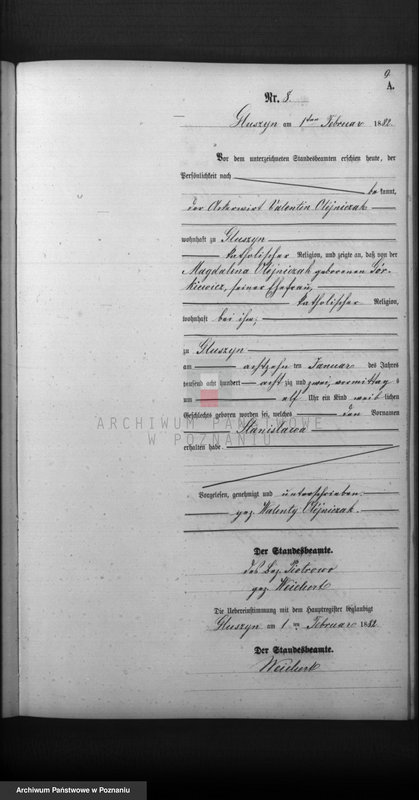 9
A.
Nr. 8.
Gluszyn am 1ten Februar 1882.
Vor dem unterzeichneten Standesbeamten erschien heute, der
Persönlichkeit nach
be kannt,
der Ackerwirt Valentin Olejniczak
wohnhaft zu Gluszyn
katholischer Religion, und zeigte an, daß von der
Magdalena Olejniczak geborenen Gór-
kiewicz, seiner Ehefrau,
katholischer Religion,
wohnhaft bei ihm,
zu Gluszyn
am achtzehn ten Januar des Jahres
tausend acht hundert acht zig und zwei, vormittag s
um elf Uhr ein Kind weib lichen
Geschlechts geboren worden sei, welches den Vornamen
Stanislawa
erhalten habe.
ARCHIWUM PAŃSTWOWE
W POZNANIU
Vorgelesen, genehmigt und unterschrieben.
gez. Walenty Olejniczak.
Der Standesbeamte.
des Bez. Piotrowo
gez. Weichert
Die Uebereinstimmung mit dem Hauptregister beglaubigt
Gluszyn am 1ten Februar 1882.
Der Standesbeamte.
Weichert
Archiwum Państwowe w Poznaniu